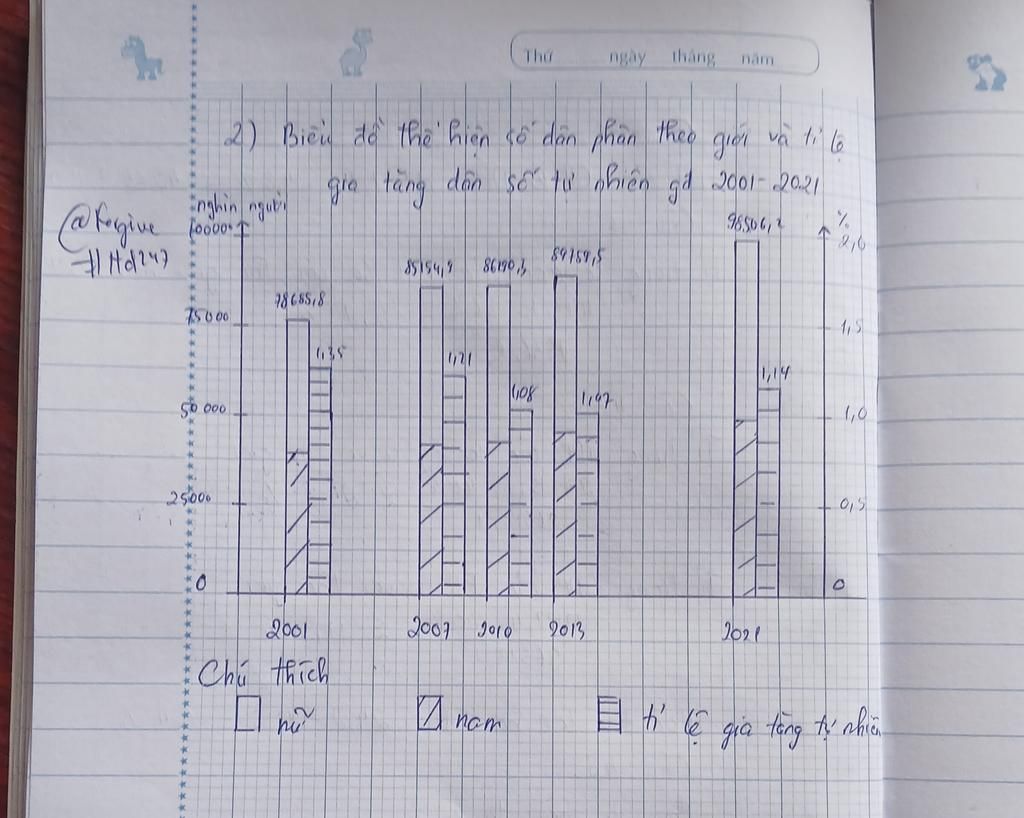 Thứ ngày tháng năm
2) Biểu đồ thể hiện số dân phân theo giới và tỉ lệ
gia tăng dân số tự nhiên gđ 2001-2021
@Forgive
#Hd247
nghìn người
%
100000
2,0
98506,2
85154,9
86190,3
89759,5
78685,8
75000
1,5
1,35
1,21
1,14
1,08
1,07
50 000
1,0
25000
0,5
0
0
2001 2007 2010 2013 2021
Chú thích
nữ nam tỉ lệ gia tăng tự nhiên